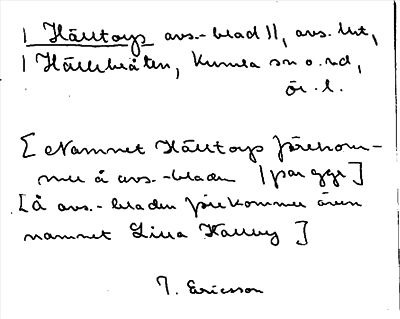 | Hälltorps avs.-blad II, avs. lht,
| Hällebråten, Kumla sn o. hd,
ör. l.
[ Namnet Hälltorps förekom-
mer å avs.-bladen 1 par ggr ]
[ Å avs.-bladen förekommer även
namnet Lilla Hallby ]
T. Ericsson